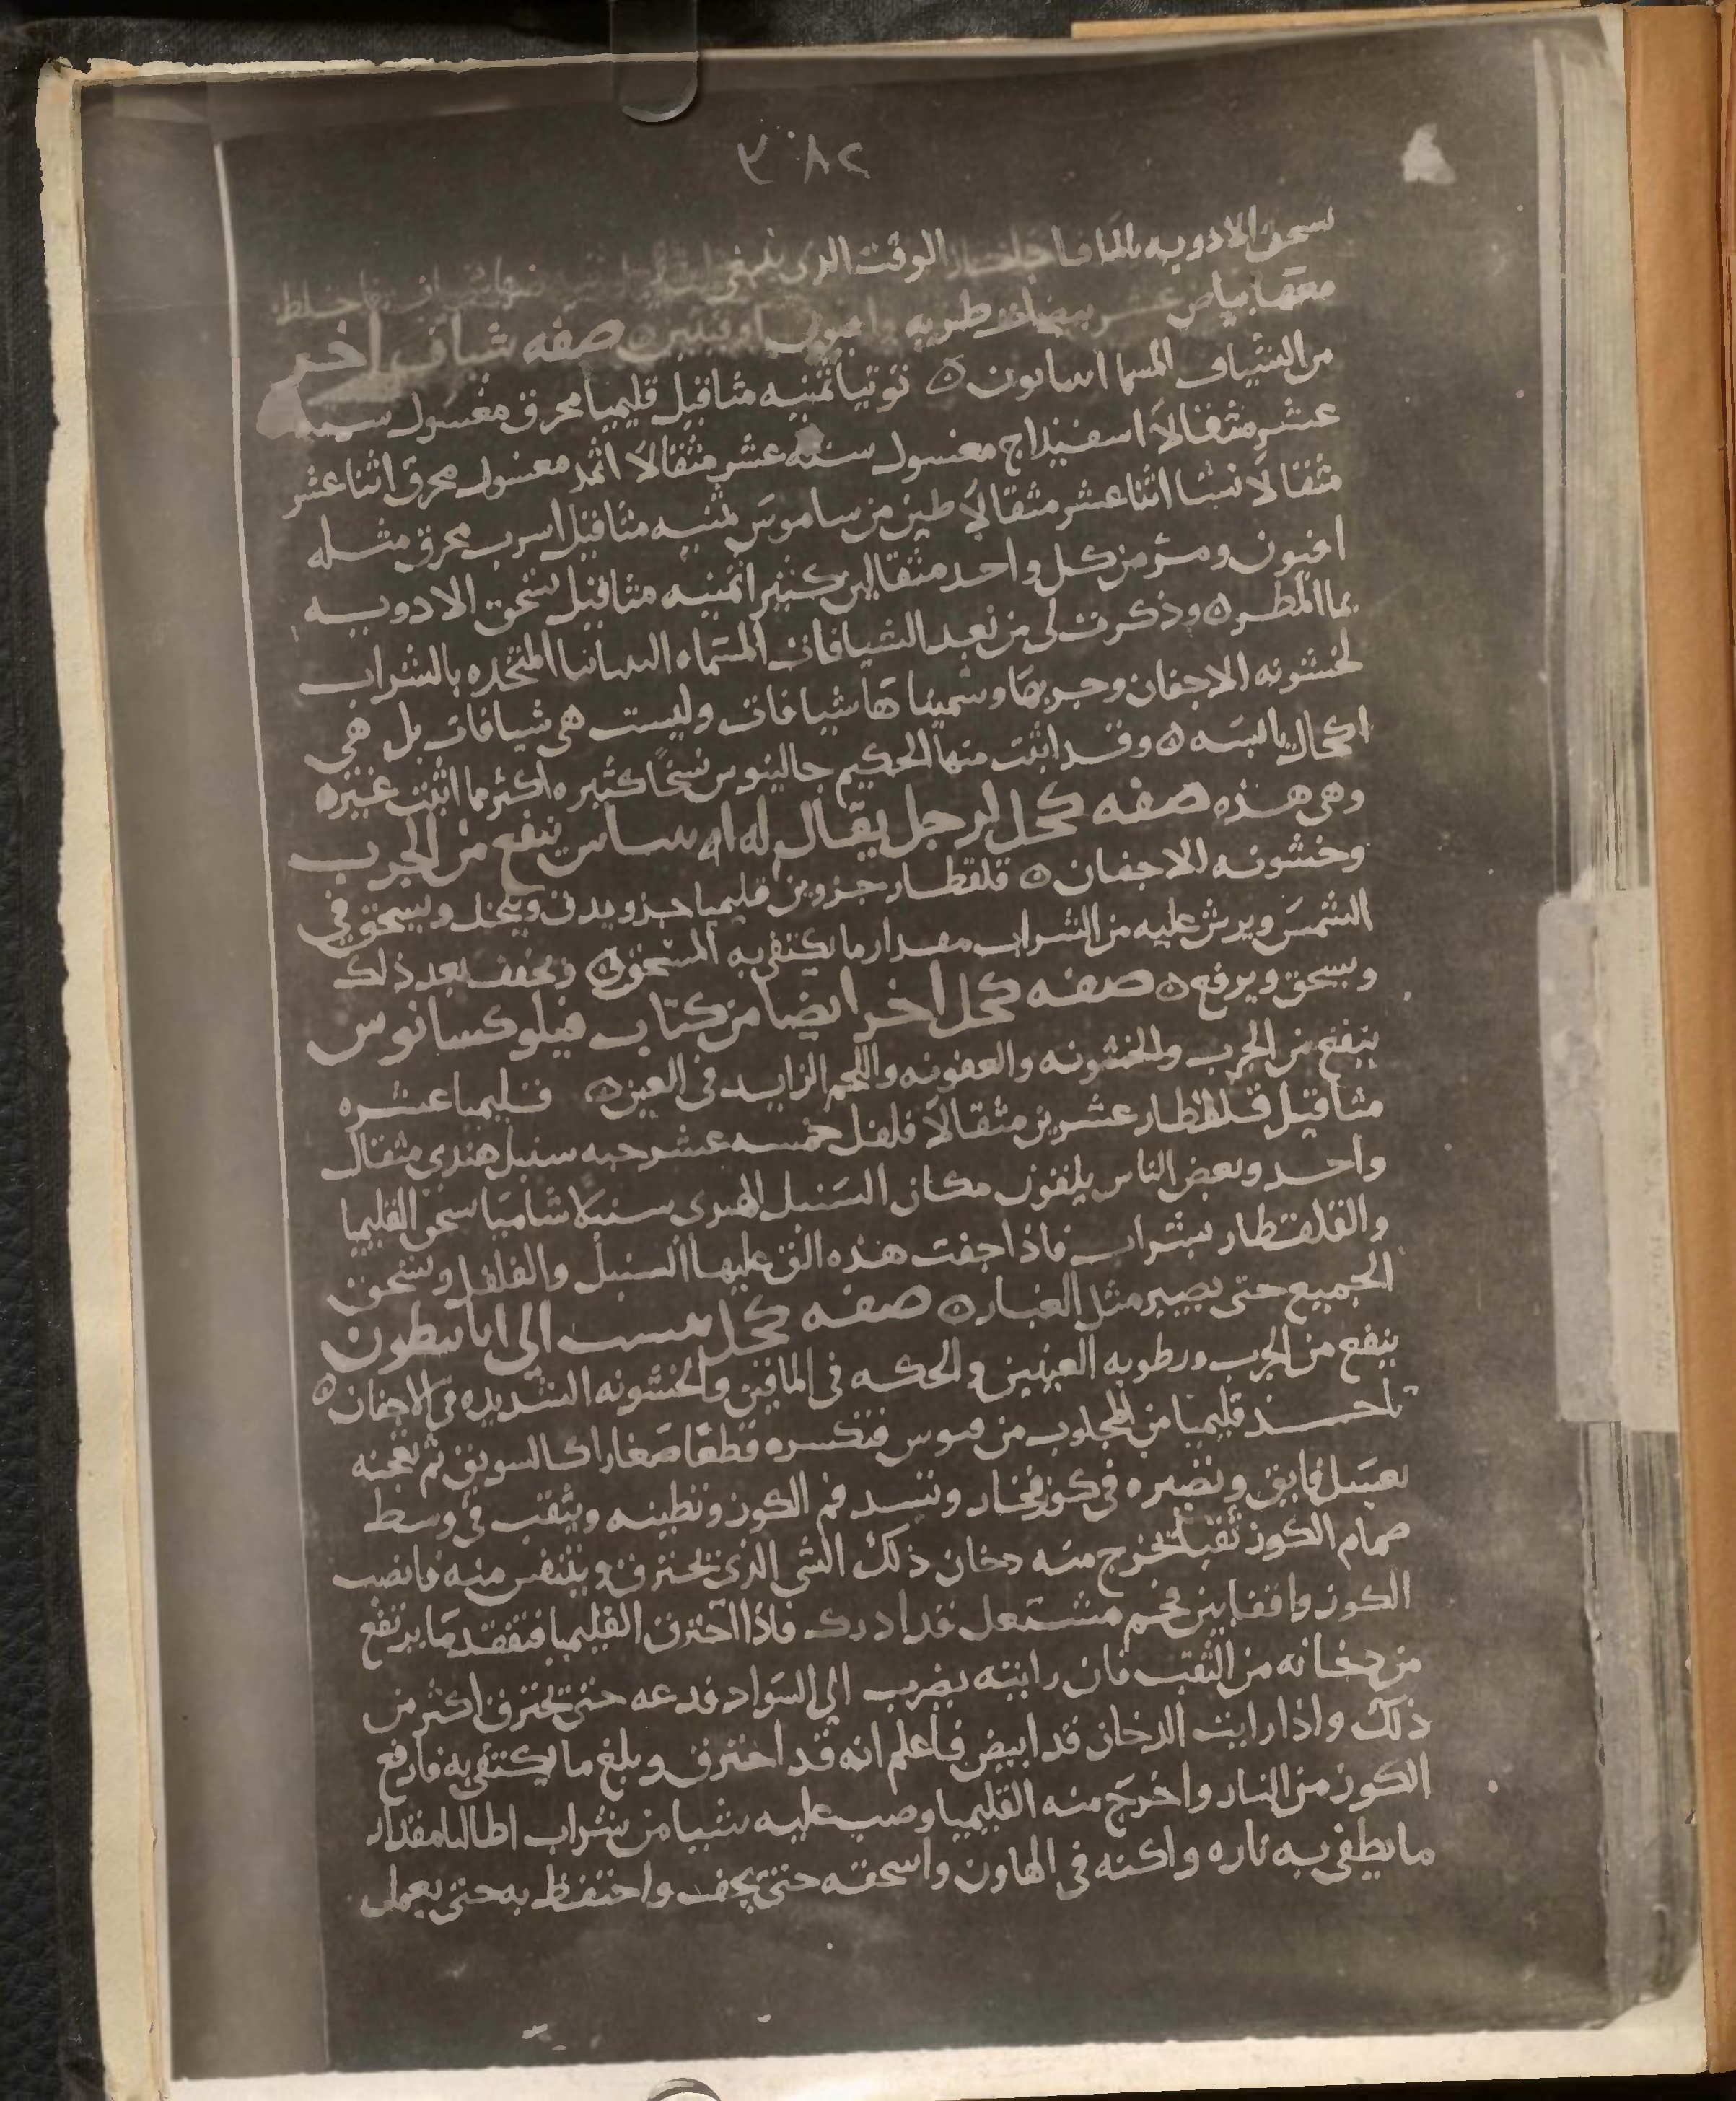 تسحق الادويه بالما فاذا الوقت الذى ينبغى
معها بياض عشر بيضات طريه اوقيتين ٥ صفه شياف اخر
من الشياف المسما ٥ توتيا ثمنيه مثاقيل قليميا محرق مغسول سته
عشر مثقالا اسفيذاج مغسول سته عشر مثقالا اثمد مغسول محرق اثنا عشر
مثقالا نشا اثنا عشر مثقالا طين من ساموس ثمنيه مثاقيل اسرب محرق مثله
افيون ومر من كل واحد مثقالين كثيرا ثمنيه مثاقيل تسحق الادويه
بما المطر ٥ وذكرت لى من بعد الشيافات المسماه المتخذه بالشراب
لخشونه الاجفان وجربها وسميناها شيافات وليست هى شيافات بل هى
اكحال يابسه ٥ وقد اثبت منها الحكيم جالينوس نسخا كثيره اكثر مما اثبت غيره
وهى هذه صفه كحل لرجل يقال له ينفع من الجرب
وخشونه الاجفان ٥ قلقطار جزوين قليميا جزو يدق وينخل ويسحق فى
الشمس ويرش عليه من الشراب مقدار ما يكتفى به المسحوق ٥ ويجفف بعد ذلك
ويسحق ويرفع ٥ صفه كحل اخر ايضا من كتاب فيلوكسانوس
ينفع من الجرب والخشونه والعفونه واللحم الزايد فى العين ٥ قليميا عشره
مثاقيل قلقطار عشرين مثقالا فلفل خمسه عشر حبه سنبل هندى مثقال
واحد وبعض الناس يلقون مكان السنبل الهندى سنبلا شاميا سحق القليميا
والقلقطار بشراب فاذا جفت هذه القى عليها السنبل والفلفل وتسحق
الجميع حتى يصير مثل الغبار ٥ صفه كحل ينسب الى
ينفع من الجرب ورطوبه العينين والحكه فى الماقين والخشونه الشديده فى الاجفان ٥
تاخذ قليميا من المجلوب من قبرس فتكسره قطعا صغارا كالسويق ثم تعجنه
بعسل فايق وتصيره فى كوز فخار وتسد فم الكوز وتطينه ويثقب فى وسط
صمام الكوز ثقبا لخرج منه دخان ذلك الشى الذى يحترق ويتنفس منه فانصب
الكوز واقفا بين فحم مشتعل قد ادرك فاذا احترق القليميا فتفقد ما يرتفع
من دخانه من الثقب فان رايته يضرب الى السواد فدعه حتى يحترق اكثر من
ذلك واذا رايت الدخان قد ابيض فاعلم انه قد احترق وبلغ ما يكتفى به فارفع
الكوز من النار واخرج منه القليميا وصب عليه شيا من شراب اطاليا مقدار
ما يطفى به ناره واكنه فى الهاون واسحقه حتى يجف واحتفظ به حتى يعمل